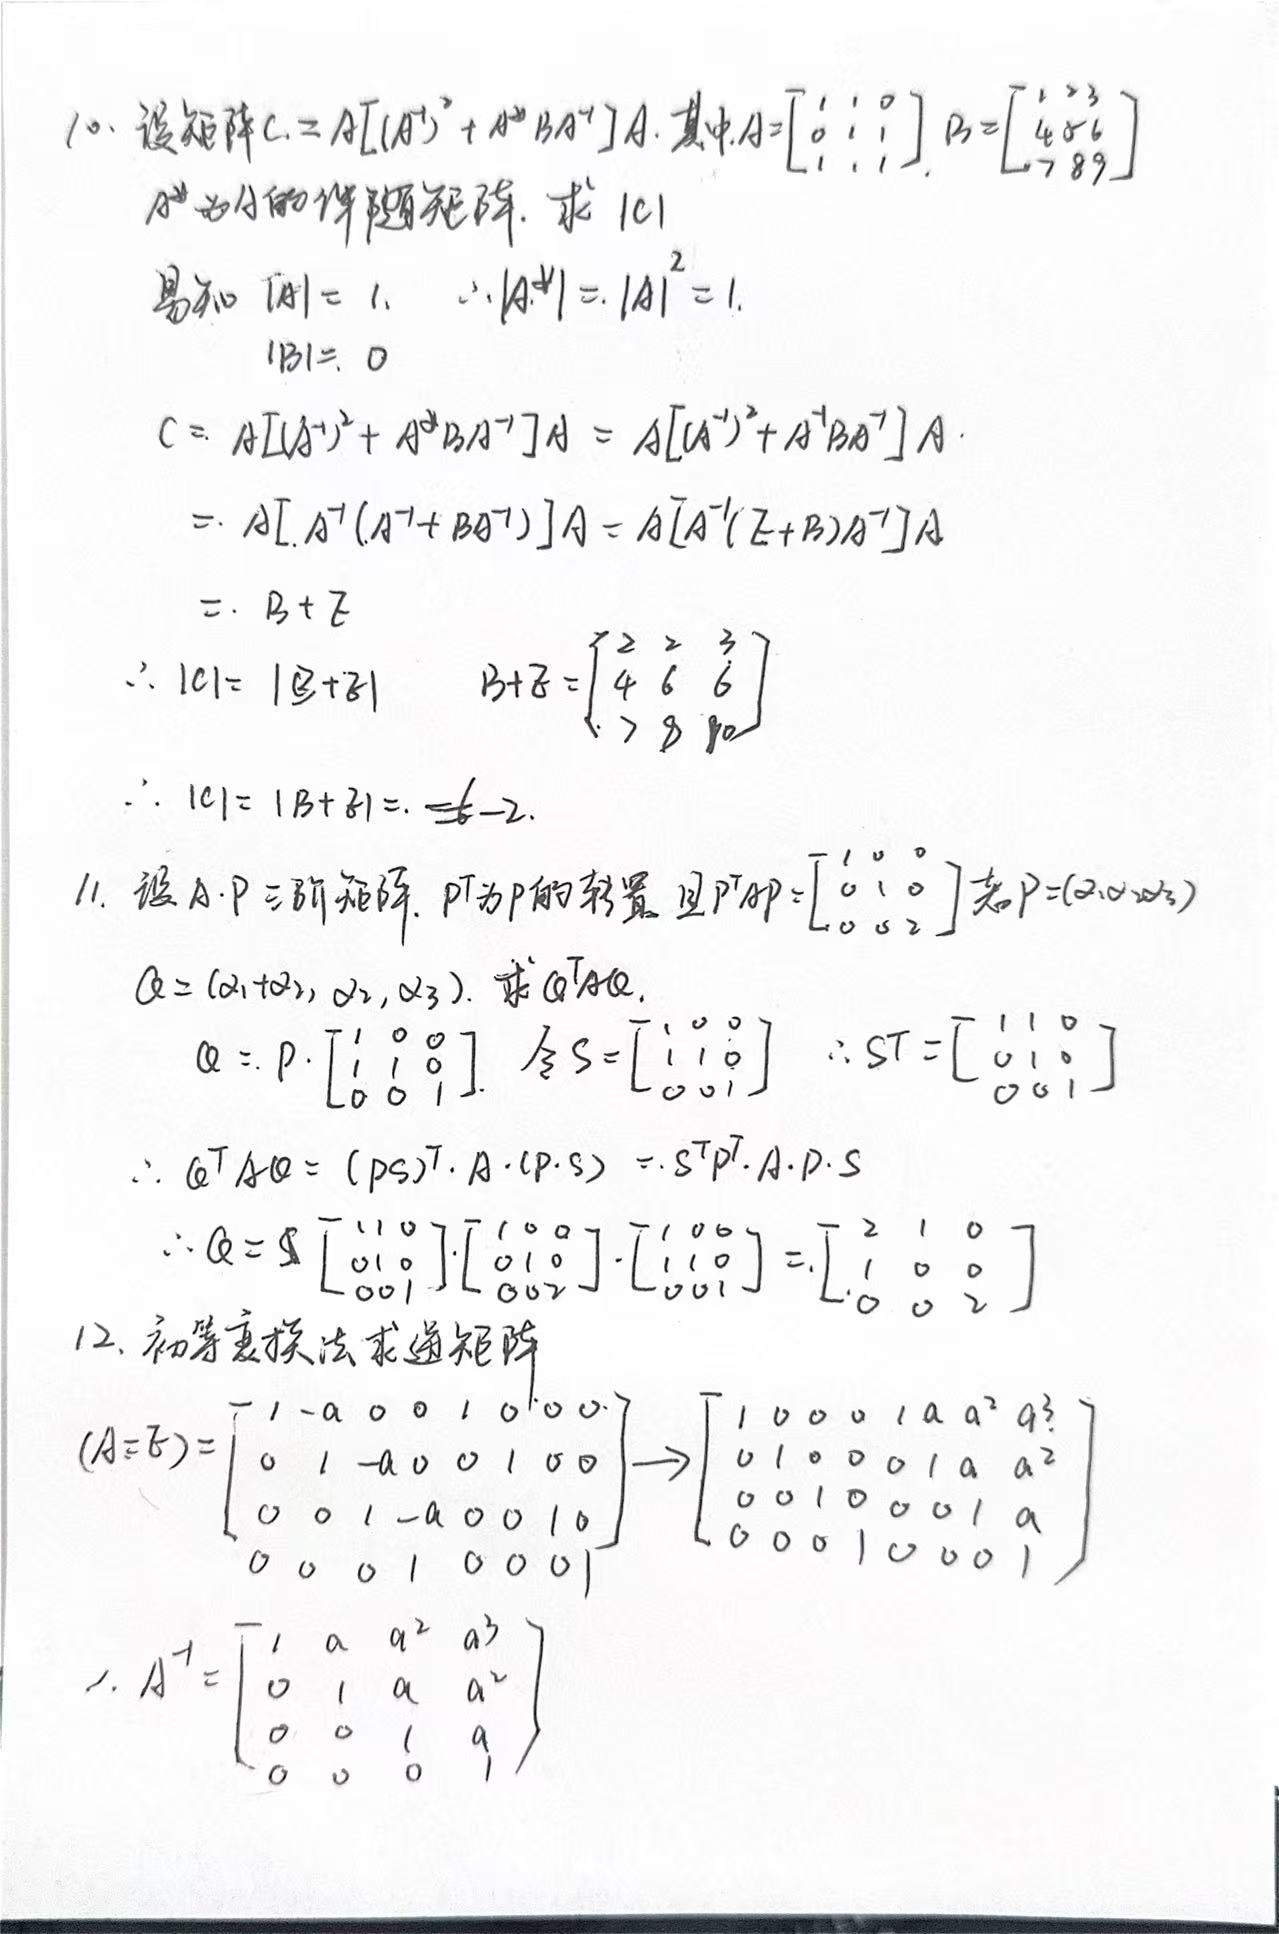 10. 设矩阵C = A[(A⁻¹)² + A*BA⁻¹]A. 其中A = [1 1 0; 0 1 1; 1 1 1]. B = [1 2 3; 4 5 6; 7 8 9]
A*为A的伴随矩阵. 求 |C|
易知 |A| = 1. ∴|A*| = |A|² = 1.
|B| = 0
C = A[(A⁻¹)² + A*BA⁻¹]A = A[(A⁻¹)² + A⁻¹BA⁻¹]A.
= A[A⁻¹(A⁻¹ + BA⁻¹)]A = A[A⁻¹(E+B)A⁻¹]A
= B + E
∴ |C| = |B+E| B+E = [2 2 3; 4 6 6; 7 8 10]
∴ |C| = |B+E| = -2.
11. 设A.P三阶矩阵. Pᵀ为P的转置 且PᵀAP = [1 0 0; 0 1 0; 0 0 2] 若P=(α₁α₂α₃)
Q = (α₁+α₂, α₂, α₃). 求QᵀAQ.
Q = P·[1 0 0; 1 1 0; 0 0 1]. 令S = [1 0 0; 1 1 0; 0 0 1] ∴Sᵀ = [1 1 0; 0 1 0; 0 0 1]
∴ QᵀAQ = (PS)ᵀ·A·(P·S) = SᵀPᵀ·A·P·S
∴ Q = [1 1 0; 0 1 0; 0 0 1]·[1 0 0; 0 1 0; 0 0 2]·[1 0 0; 1 1 0; 0 0 1] = [2 1 0; 1 0 0; 0 0 2]
12. 初等变换法求逆矩阵
(A⋮E) = [1 -a 0 0 1 0 0 0; 0 1 -a 0 0 1 0 0; 0 0 1 -a 0 0 1 0; 0 0 0 1 0 0 0 1] → [1 0 0 0 1 a a² a³; 0 1 0 0 0 1 a a²; 0 0 1 0 0 0 1 a; 0 0 0 1 0 0 0 1]
∴ A⁻¹ = [1 a a² a³; 0 1 a a²; 0 0 1 a; 0 0 0 1]